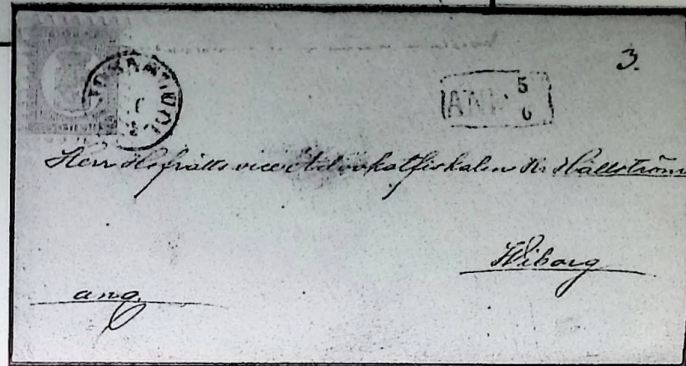 3.
ANK 5
6
Herr Hofrätts vice Advokatfiskalen Hällström
Wiborg
ang.